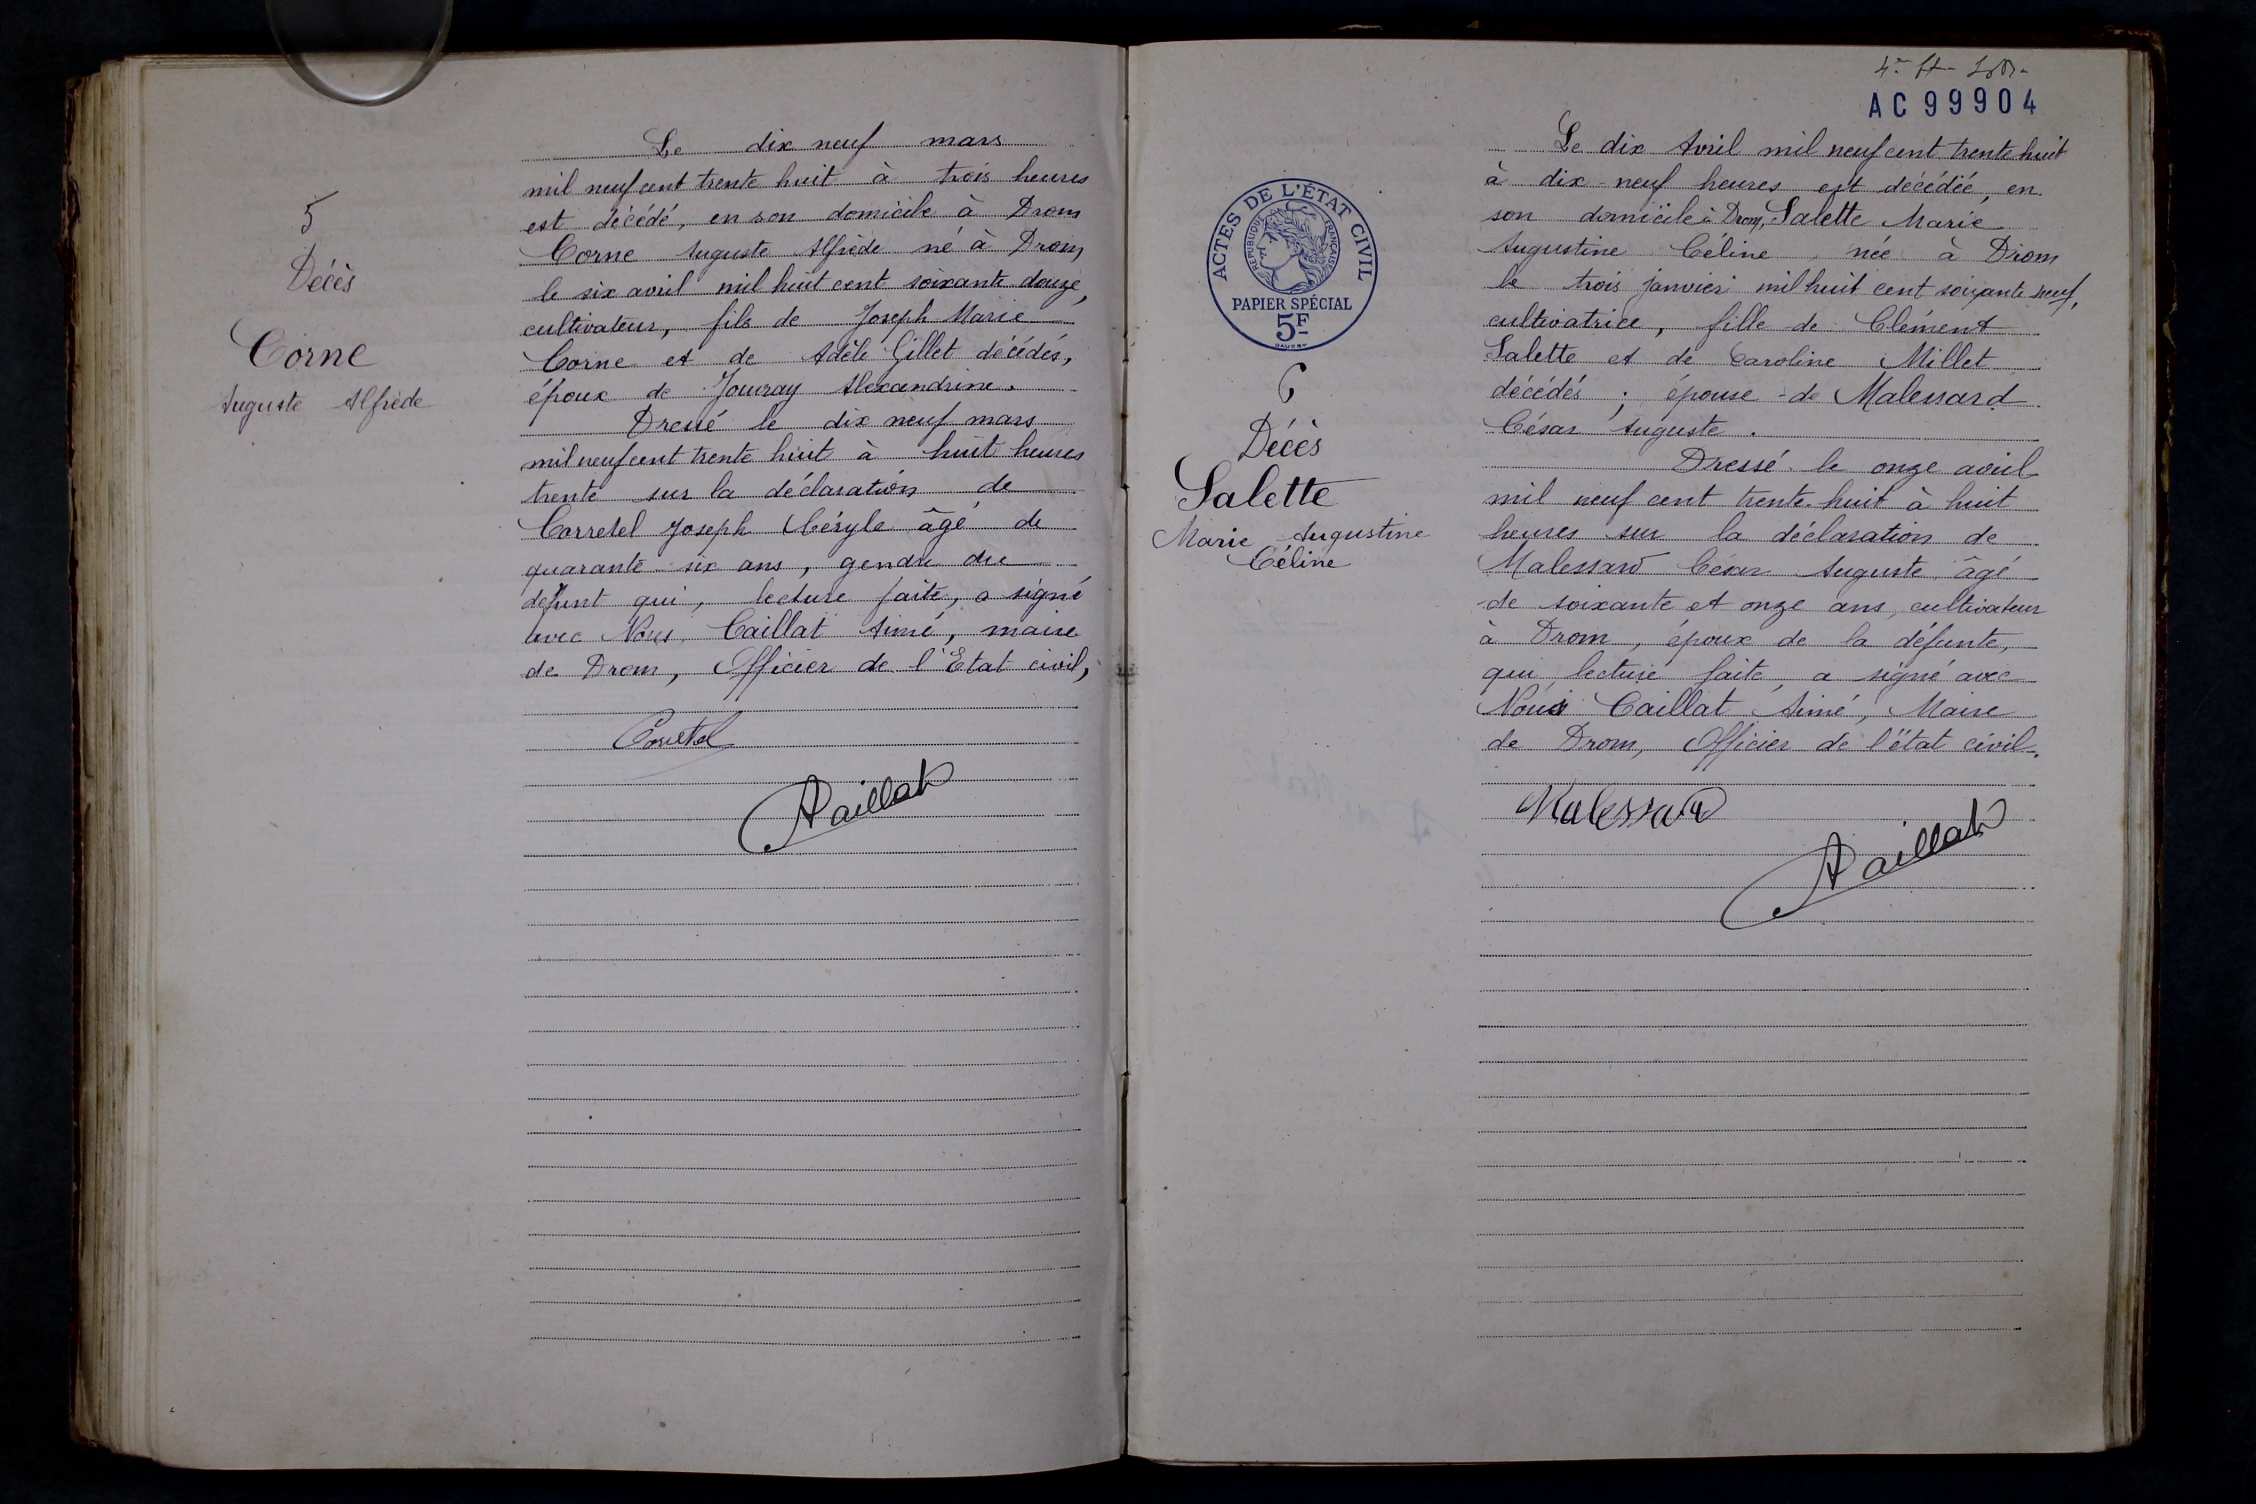 5
Décès
Corne
Auguste Alfrède
Le dix neuf mars
mil neuf cent trente huit à trois heures
est décédé, en son domicile à Drom
Corne Auguste Alfrède né à Drom,
le six avril mil huit cent soixante douze,
cultivateur, fils de Joseph Marie
Corne et de Adèle Gillet décédés,
époux de Jouvray Alexandrine.
Dressé le dix neuf mars
mil neuf cent trente huit à huit heures
trente sur la déclaration de
Corretel Joseph Céryle âgé de
quarante six ans, gendre du
défunt qui, lecture faite, a signé
avec Nous Caillat Aimé, maire
de Drom, Officier de l'Etat civil,
Corretel
ACaillat
AC 99904
ACTES DE L'ÉTAT CIVIL
RÉPUBLIQUE FRANÇAISE
PAPIER SPÉCIAL
5F
6
Décès
Salette
Marie Augustine
Céline
Le dix Avril mil neuf cent trente huit
à dix-neuf heures est décédée, en
son domicile à Drom, Salette Marie
Augustine Céline née à Drom
le trois janvier mil huit cent soixante neuf,
cultivatrice, fille de Clément
Salette et de Caroline Millet
décédés ; épouse de Malessard
César Auguste.
Dressé le onze avril
mil neuf cent trente-huit à huit
heures sur la déclaration de
Malessard César Auguste âgé
de soixante et onze ans, cultivateur
à Drom, époux de la défunte,
qui, lecture faite, a signé avec
Nous Caillat Aimé, Maire
de Drom, Officier de l'état civil.
Malessard
ACaillat